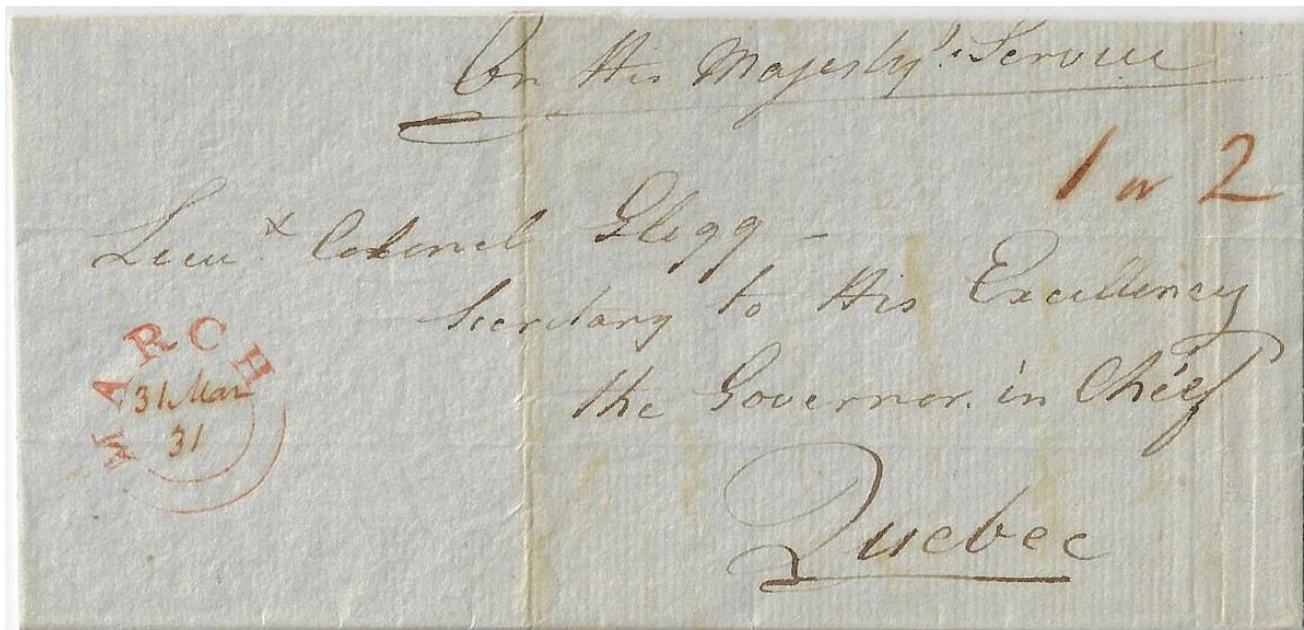 On His Majesty's Service
1 or 2
Lieut Colonel Glegg –
Secretary to His Excellency
the Governor in Chief
MARCH
31 Mar
31
Quebec